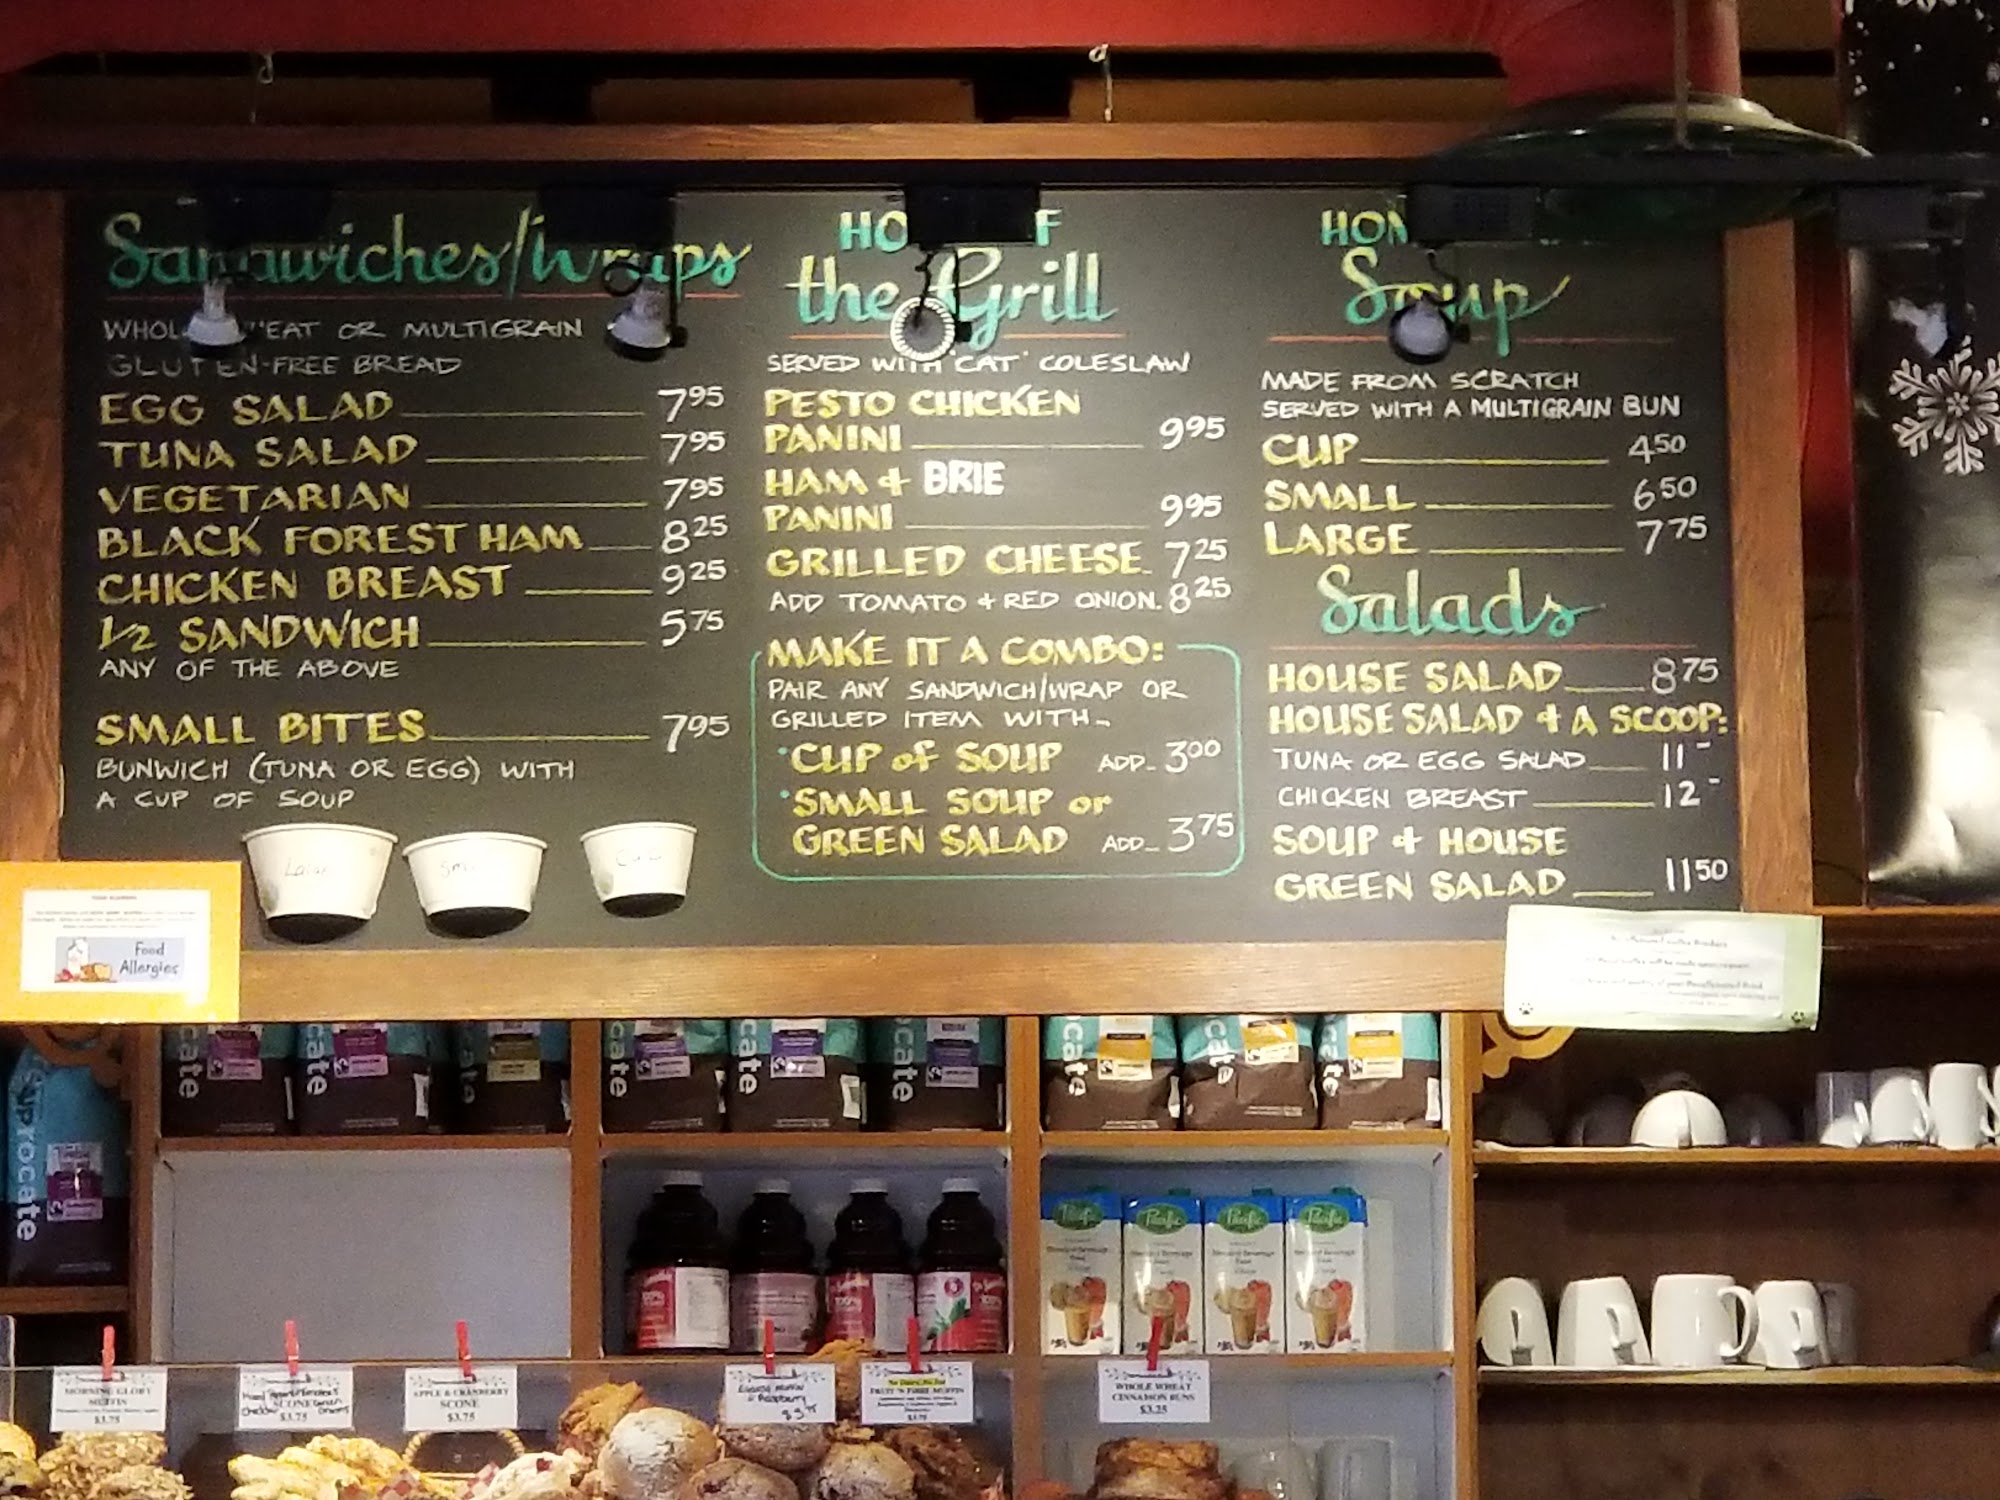 Sandwiches/Wraps
OR MULTIGRAIN
GLUTEN-FREE BREAD
EGG SALAD 7.95
TUNA SALAD 7.95
VEGETARIAN 7.95
BLACK FOREST HAM 8.25
CHICKEN BREAST 9.25
1/2 SANDWICH 5.75
ANY OF THE ABOVE
SMALL BITES 7.95
BUNWICH (TUNA OR EGG) WITH
A CUP OF SOUP
Large
Small
Cup
the Grill
SERVED WITH 'CAT' COLESLAW
PESTO CHICKEN
PANINI 9.95
HAM & BRIE
PANINI 9.95
GRILLED CHEESE 7.25
ADD TOMATO & RED ONION. 8.25
MAKE IT A COMBO:
PAIR ANY SANDWICH/WRAP OR
GRILLED ITEM WITH
• CUP of SOUP ADD 3.00
• SMALL SOUP or
GREEN SALAD ADD 3.75
Soup
MADE FROM SCRATCH
SERVED WITH A MULTIGRAIN BUN
CUP 4.50
SMALL 6.50
LARGE 7.75
Salads
HOUSE SALAD 8.75
HOUSE SALAD & A SCOOP:
TUNA OR EGG SALAD 11-
CHICKEN BREAST 12-
SOUP & HOUSE
GREEN SALAD 11.50
Food
Allergies
cate
cate
cate
cate
cate
cate
rocate
Pacific
Pacific
Pacific
Pacific
100%
100%
MORNING GLORY
MUFFIN
$3.75
SCONE
$3.75
APPLE & CRANBERRY
SCONE
$3.75
Raspberry
FRUIT 'N FIBRE MUFFIN
$3.75
WHOLE WHEAT
CINNAMON BUNS
$3.25